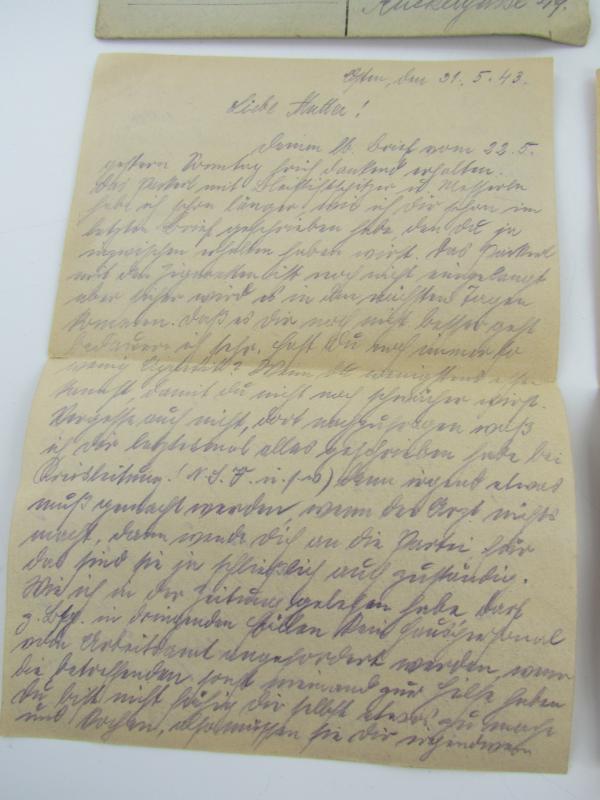 Rückergasse 49.
Osten, den 31.5.43.
Liebe Mutter!
Deinen lb. Brief vom 22.5.
gestern Sonntag früh dankend erhalten.
Das Packerl mit Bleistiftspitzer u. Messerln
habe ich schon länger wie ich dir schon im
letzten Brief geschrieben habe den du ja
inzwischen erhalten haben wirst. Das Packerl
mit den Zigaretten ist noch nicht eingelangt
aber sicher wird es in den nächsten Tagen
kommen. Daß es dir noch nicht besser geht
bedauere ich sehr. Hast du noch immer so
wenig Appetit? Wenn du wenigstens essen
könntest, damit du nicht noch schwächer wirst.
Vergesse auch nicht, dort nachzufragen was
ich dir letztesmal alles geschrieben habe bei
Kreisleitung! N.S.F. u.s.w) denn irgend etwas
muß gemacht werden wenn der Arzt nichts
macht, dann wende dich an die Partei, für
das sind sie ja schließlich auch zuständig.
Wie ich in der Zeitung gelesen habe darf
z. in dringenden Fällen kein Hauspersonal
vom Arbeitsamt angefordert werden, wenn
die betreffenden sonst niemand zur Hilfe haben
du bist nicht fähig dir selbst etwas zu machen
und kochen, also müssen sie dir irgendwen